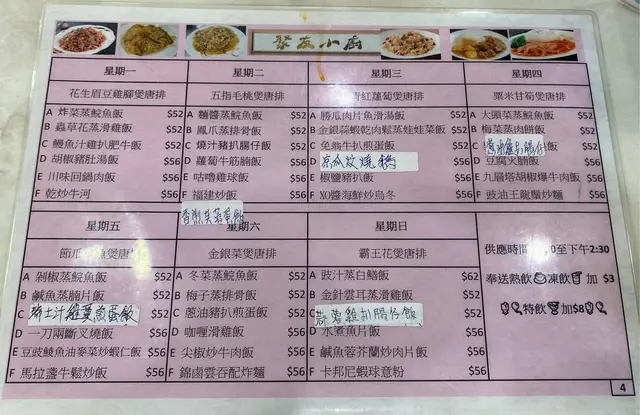 聚友小廚
星期一
花生眉豆雞腳煲唐排
A 炸菜蒸鯇魚飯 $52
B 蟲草花蒸滑雞飯 $52
C 鰻魚汁雞扒肥牛飯 $52
D 胡椒豬肚湯飯 $56
E 川味回鍋肉飯 $56
F 乾炒牛河 $56
星期二
五指毛桃煲唐排
A 麵醬蒸鯇魚飯 $52
B 鳳爪蒸排骨飯 $52
C 燒汁豬扒腸仔飯 $52
D 蘿蔔牛筋腩飯 $56
E 咕嚕雞球飯 $56
F 福建炒飯 $56
星期三
青紅蘿蔔煲唐排
A 勝瓜肉片魚滑湯飯 $52
B 金銀蒜蝦乾肉鬆蒸娃娃菜飯 $52
C 免翁牛扒煎蛋飯 $52
涼瓜炆燒鵝 $56
E 椒鹽豬扒飯 $56
F XO醬海鮮炒烏冬 $56
星期四
粟米甘筍煲唐排
A 大頭菜蒸鯇魚飯 $52
B 梅菜蒸肉餅飯 $52
C 豉油雞扒腸仔飯 $52
D 豆腐火腩飯 $56
E 九層塔胡椒爆牛肉飯 $56
F 豉油王龍鬚炒麵 $56
星期五
節瓜 魚煲唐排
A 剁椒蒸鯇魚飯 $52
B 鹹魚蒸腩片飯 $52
C 瑞士汁雞翼煎蛋飯 $52
D 一刀兩斷叉燒飯 $56
E 豆豉鯪魚油麥菜炒蝦仁飯 $56
F 馬拉盞牛鬆炒飯 $56
星期六
金銀菜煲唐排
A 冬菜蒸鯇魚飯 $52
B 梅子蒸排骨飯 $52
C 蔥油豬扒煎蛋飯 $52
D 咖喱滑雞飯 $56
E 尖椒炒牛肉飯 $56
F 錦鹵雲吞配炸麵 $56
星期日
霸王花煲唐排
A 豉汁蒸白鱔飯 $62
B 金針雲耳蒸滑雞飯 $52
C 蒜蓉雞扒腸仔飯 $52
D 水煮魚片飯 $56
E 鹹魚蓉芥蘭炒肉片飯 $56
F 卡邦尼蝦球意粉 $56
供應時間 0至下午2:30
奉送熱飲 凍飲 加 $3
特飲 加$8
4